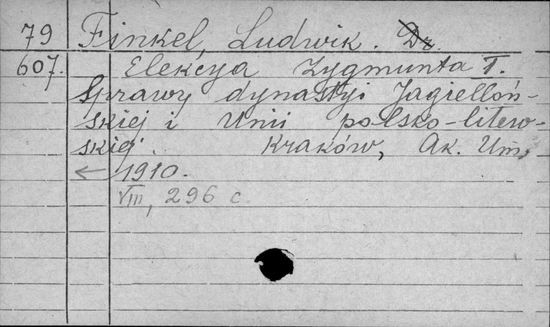 79 Finkel, Ludwik. Dr.
607. Elekcya Zygmunta I.
Sprawy dynastyi Jagielloń-
skiej i Unii polsko-litew-
skiej. Kraków, Ak. Um,
← 1910.
VIII, 296 c.